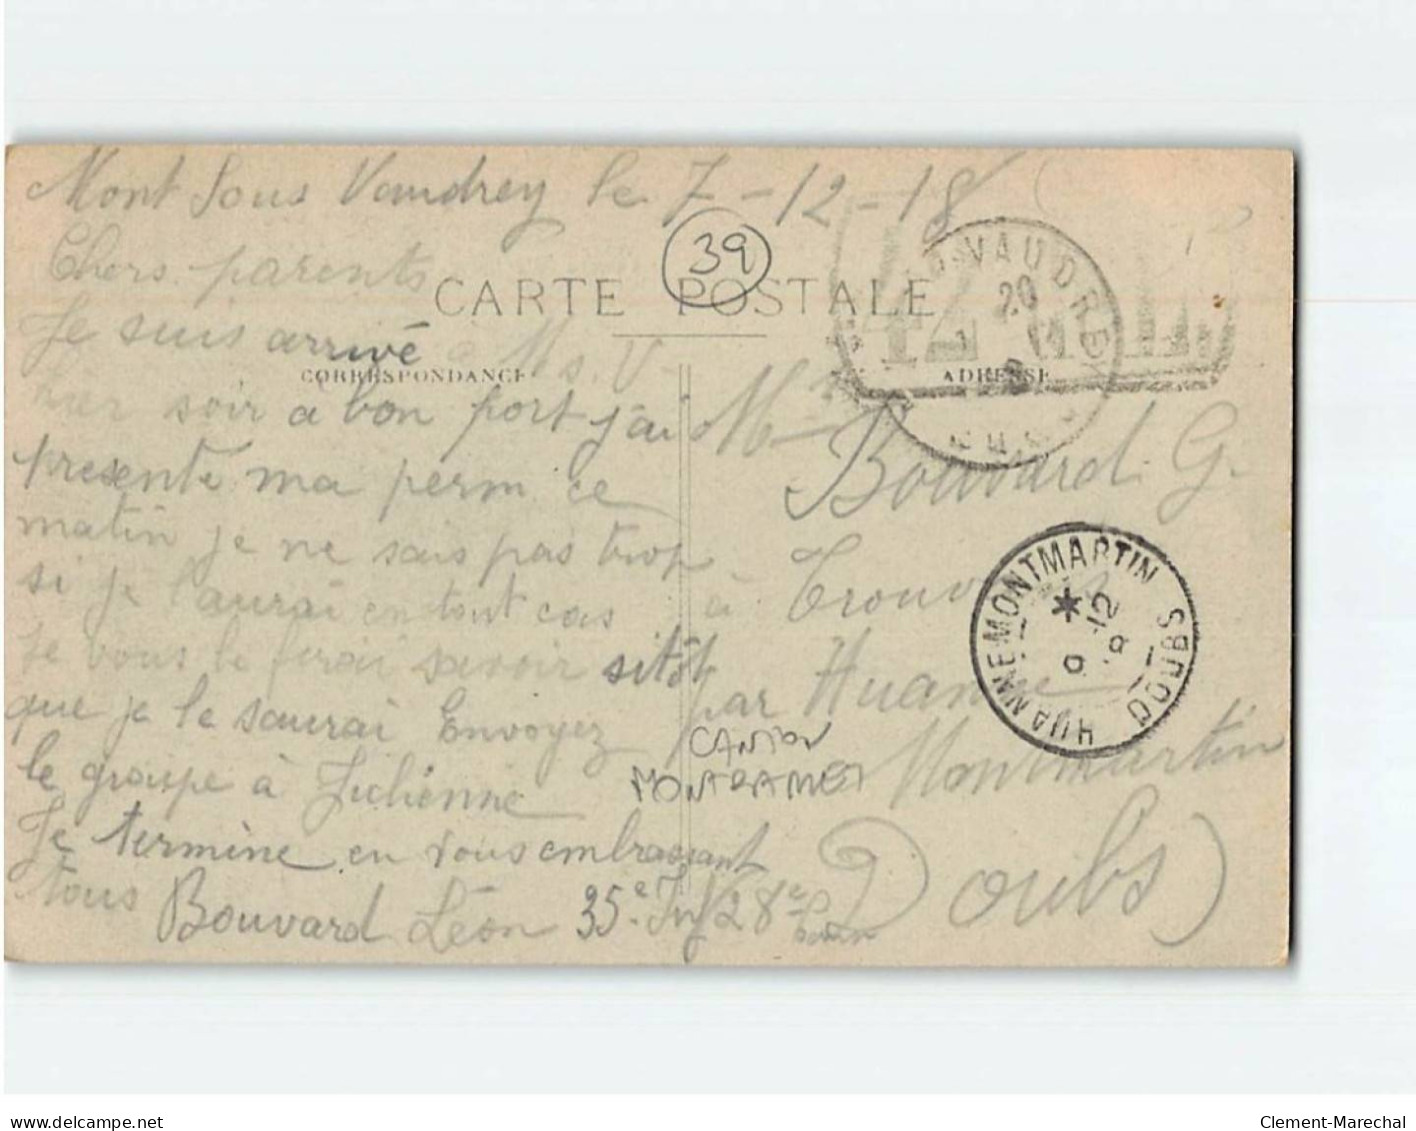 Mont Sous Vaudrey le 7-12-18
39
Chers parents
CARTE POSTALE
Je suis arrivé à M s. V
CORRESPONDANCE
ADRESSE
hier soir a bon port j'ai
presente ma perm ce
matin je ne sais pas trop
si je l'aurai en tout cas
je vous le ferai savoir sitôt
que je le saurai Envoyez
le groupe à Julienne
Je termine en vous embrassant
tous Bouvard Léon 35e Inf 28e
VAUDREY
20
Bouvard G.
à Trouv
par Huanne
Montmartin
Doubs
CANTON
HUANNE MONTMARTIN
* 9 -12
DOUBS
delcampe.net
Clement-Marechal